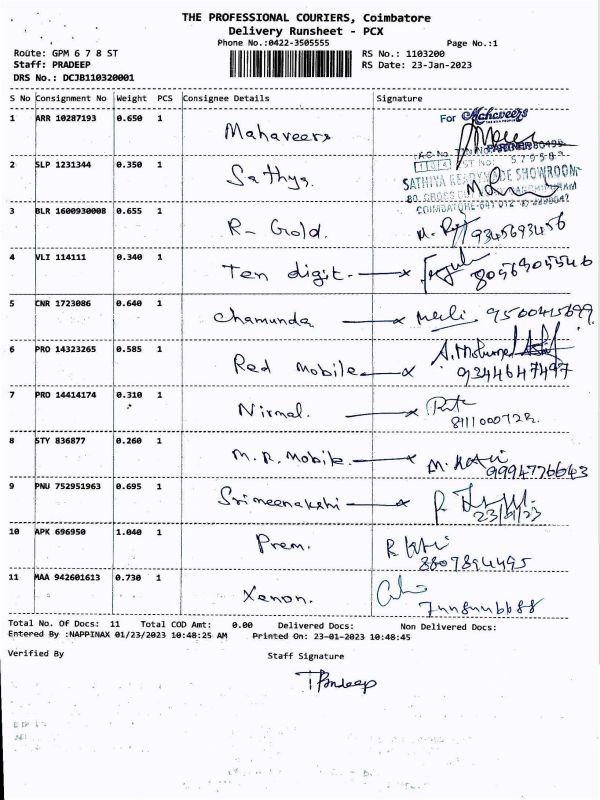 THE PROFESSIONAL COURIERS, Coimbatore
Delivery Runsheet - PCX
Phone No.:0422-3505555
Page No.:1
Route: GPM 6 7 8 ST
RS No.: 1103200
Staff: PRADEEP
RS Date: 23-Jan-2023
DRS No.: DCJB110320001
S No Consignment No Weight PCS Consignee Details Signature
1 ARR 10287193 0.650 1 Mahaveers For Mahaveers
PARTNER
2 SLP 1231344 0.350 1 Sathya.
SATHIYA READYMADE SHOWROOM
3 BLR 1600930008 0.655 1 R- Gold. 9345693456
4 VLI 114111 0.340 1 Ten digit. 8056905546
5 CNR 1723086 0.640 1 Chamunda 9500415699
6 PRO 14323265 0.585 1 Red Mobile. 9344647497
7 PRO 14414174 0.310 1 Nirmal. 8111000722.
8 STY 836877 0.260 1 M.R. Mobile. 9994776643
9 PNU 752951963 0.695 1 Srimeenakshi 23/1/23
10 APK 696950 1.040 1 Prem. 8807894495
11 MAA 942601613 0.730 1 Xenon.
Total No. Of Docs: 11 Total COD Amt: 0.00 Delivered Docs: Non Delivered Docs:
Entered By :NAPPINAX 01/23/2023 10:48:25 AM Printed On: 23-01-2023 10:48:45
Verified By Staff Signature
T Pradeep